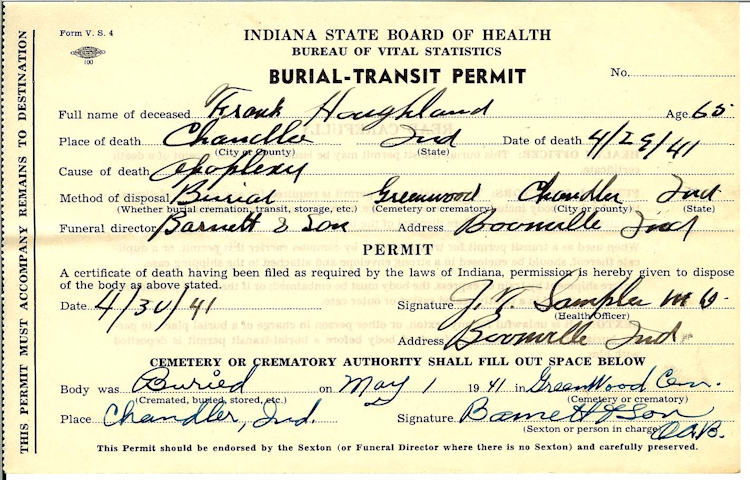 Form V. S. 4
100
INDIANA STATE BOARD OF HEALTH
BUREAU OF VITAL STATISTICS
BURIAL-TRANSIT PERMIT
No.
Full name of deceased Frank Houghland Age 65
Place of death Chandler Ind Date of death 4/29/41
(City or County) (State)
Cause of death Apoplexy
Method of disposal Burial Greenwood Chandler Ind
(Whether burial cremation, transit, storage, etc.) (Cemetery or crematory) (City or county) (State)
Funeral director Barnett & Son Address Boonville Ind
PERMIT
A certificate of death having been filed as required by the laws of Indiana, permission is hereby given to dispose
of the body as above stated.
Date 4/30/41 Signature J. V. Samples M D.
(Health Officer)
Address Boonville Ind
CEMETERY OR CREMATORY AUTHORITY SHALL FILL OUT SPACE BELOW
Body was Buried on May 1 1941 in GreenWood Cem.
(Cremated, buried, stored, etc.) (Cemetery or crematory)
Place Chandler, Ind. Signature Barnett & Son
(Sexton or person in charge)
This Permit should be endorsed by the Sexton (or Funeral Director where there is no Sexton) and carefully preserved.
THIS PERMIT MUST ACCOMPANY REMAINS TO DESTINATION